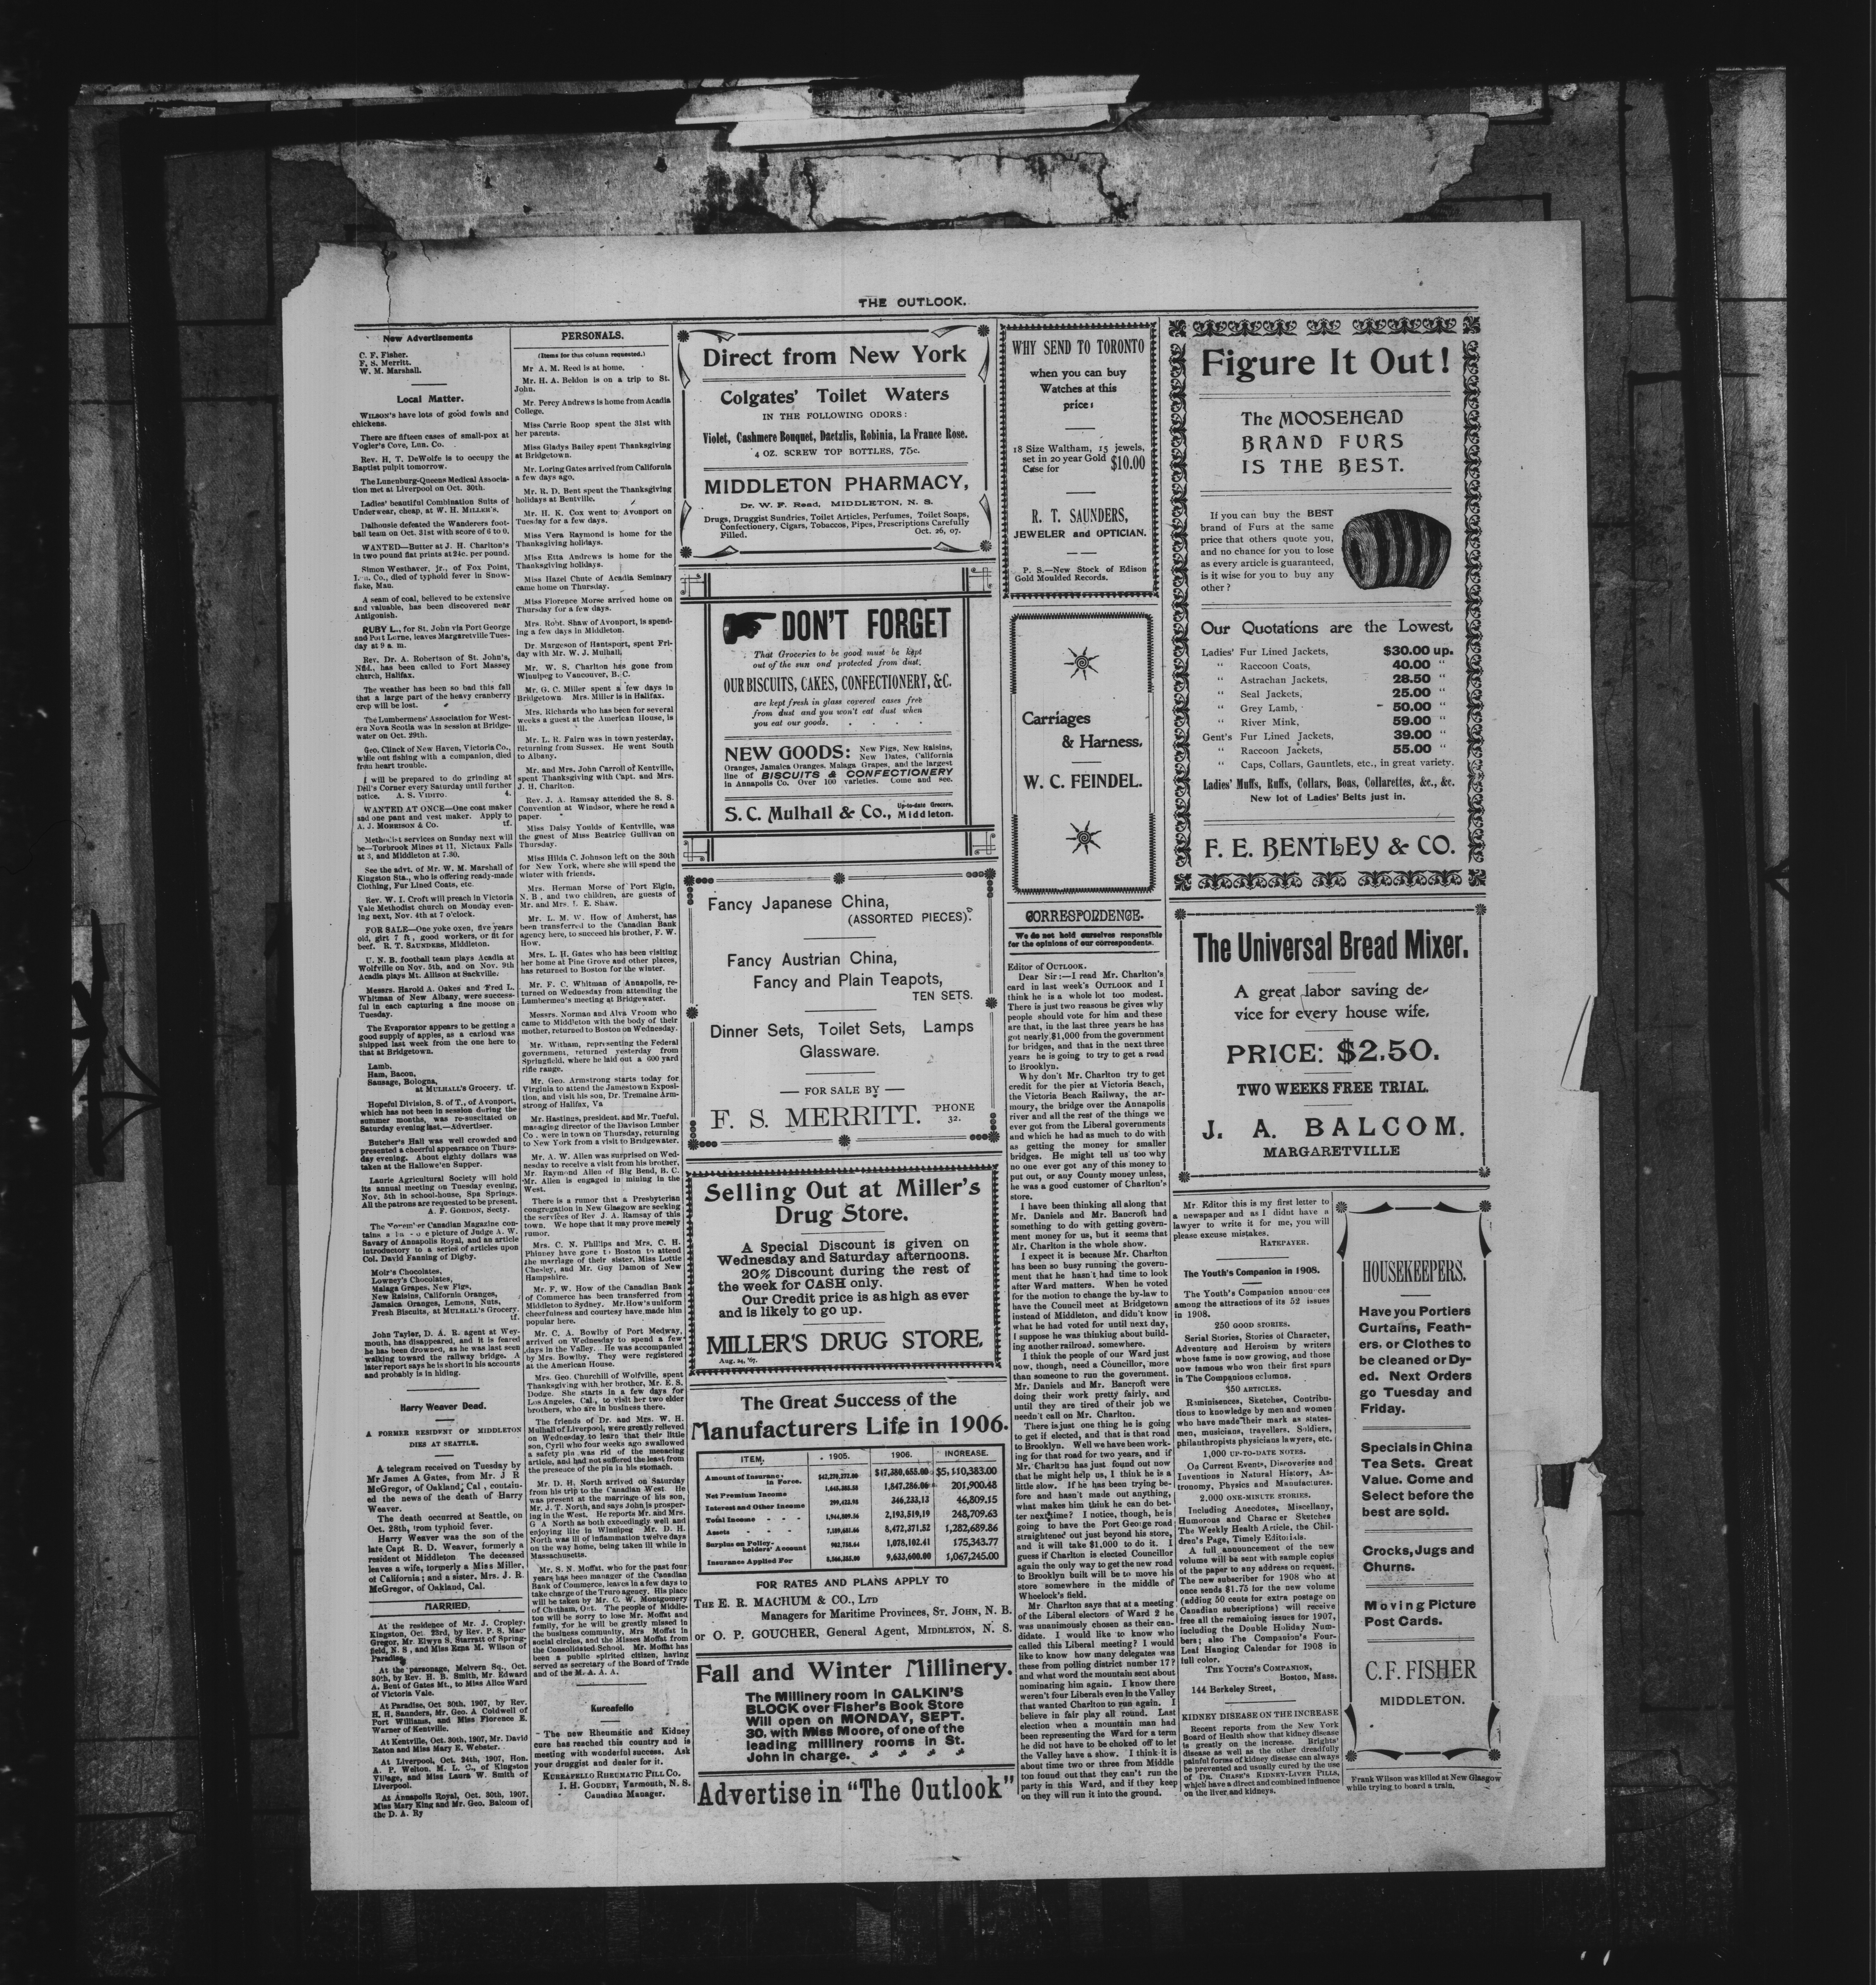 THE OUTLOOK.
New Advertisements
C. F. Fisher.
F. S. Merritt.
W. M. Marshall.
Local Matter.
WILSON'S have lots of good fowls and
chickens.
There are fifteen cases of small-pox at
Vogler's Cove, Lun. Co.
Rev. H. T. DeWolfe is to occupy the
Baptist pulpit tomorrow.
The Lunenburg-Queens Medical Associa-
tion met at Liverpool on Oct. 30th.
Ladies' beautiful Combination Suits of
Underwear, cheap, at W. H. MILLER'S.
Dalhousie defeated the Wanderers foot-
ball team on Oct. 31st with score of 6 to 0.
WANTED—Butter at J. H. Charlton's
in two pound flat prints at 24c. per pound.
Simon Westhaver, jr., of Fox Point,
Co., died of typhoid fever in Snow-
flake, Man.
A seam of coal, believed to be extensive
and valuable, has been discovered near
Antigonish.
RUBY L., for St. John via Port George
and Port Lorne, leaves Margaretville Tues-
day at 9 a. m.
Rev. Dr. A. Robertson of St. John's,
Nfld., has been called to Fort Massey
church, Halifax.
The weather has been so bad this fall
that a large part of the heavy cranberry
crop will be lost.
The Lumbermens' Association for West-
ern Nova Scotia was in session at Bridge-
water on Oct. 29th.
Geo. Clinck of New Haven, Victoria Co.,
while out fishing with a companion, died
from heart trouble.
I will be prepared to do grinding at
Dell's Corner every Saturday until further
notice. A. S. VIDITO. 4.
WANTED AT ONCE—One coat maker
and one pant and vest maker. Apply to
A. J. MORRISON & Co. tf.
Methodist services on Sunday next will
be—Torbrook Mines at 11, Nictaux Falls
at 3, and Middleton at 7.30.
See the advt. of Mr. W. M. Marshall of
Kingston Sta., who is offering ready-made
Clothing, Fur Lined Coats, etc.
Rev. W. I. Croft will preach in Victoria
Vale Methodist church on Monday even-
ing next, Nov. 4th at 7 o'clock.
FOR SALE—One yoke oxen, five years
old, girt 7 ft, good workers, or fit for
beef. R. T. SAUNDERS, Middleton.
U. N. B. football team plays Acadia at
Wolfville on Nov. 5th, and on Nov. 9th
Acadia plays Mt. Allison at Sackville.
Messrs. Harold A. Oakes and Fred L.
Whitman of New Albany, were success-
ful in each capturing a fine moose on
Tuesday.
The Evaporator appears to be getting a
good supply of apples, as a carload was
shipped last week from the one here to
that at Bridgetown.
Lamb,
Ham, Bacon,
Sausage, Bologna,
at MULHALL'S Grocery. tf.
Hopeful Division, S. of T., of Avonport,
which has not been in session during the
summer months, was re-suscitated on
Saturday evening last.—Advertiser.
Butcher's Hall was well crowded and
presented a cheerful appearance on Thurs-
day evening. About eighty dollars was
taken at the Hallowe'en Supper.
Laurie Agricultural Society will hold
its annual meeting on Tuesday evening,
Nov. 5th in school-house, Spa Springs.
All the patrons are requested to be present.
A. F. GORDON, Secty.
The November Canadian Magazine con-
tains a picture of Judge A. W.
Savary of Annapolis Royal, and an article
introductory to a series of articles upon
Col. David Fanning of Digby.
Moir's Chocolates,
Lowney's Chocolates,
Malaga Grapes, New Figs,
New Raisins, California Oranges,
Jamaica Oranges, Lemons, Nuts,
Fresh Biscuits, at MULHALL'S Grocery.
tf.
John Taylor, D. A. R. agent at Wey-
mouth, has disappeared, and it is feared
he has been drowned, as he was last seen
walking toward the railway bridge. A
later report says he is short in his accounts
and probably is in hiding.
Harry Weaver Dead.
A FORMER RESIDENT OF MIDDLETON
DIES AT SEATTLE.
A telegram received on Tuesday by
Mr James A Gates, from Mr. J R
McGregor, of Oakland, Cal, contain-
ed the news of the death of Harry
Weaver.
The death occurred at Seattle, on
Oct. 28th, from typhoid fever.
Harry Weaver was the son of the
late Capt R. D. Weaver, formerly a
resident of Middleton The deceased
leaves a wife, formerly a Miss Miller,
of California; and a sister, Mrs. J. R.
McGregor, of Oakland, Cal.
MARRIED.
At the residence of Mr. J. Cropley,
Kingston, Oct. 23rd, by Rev. P. S. Mac-
Gregor, Mr. Elwyn S. Starratt of Spring-
field, N. S, and Miss Ezma M. Wilson of
Paradise.
At the parsonage, Melvern Sq., Oct.
30th, by Rev. H. B. Smith, Mr. Edward
A. Bent of Gates Mt., to Miss Alice Ward
of Victoria Vale.
At Paradise, Oct 30th, 1907, by Rev.
H. H. Saunders, Mr. Geo. A Coldwell of
Port Williams, and Miss Florence E.
Warner of Kentville.
At Kentville, Oct. 30th, 1907, Mr. David
Eaton and Miss Mary E. Webster.
At Liverpool, Oct. 24th, 1907, Hon.
A. P. Welton, M. L. C., of Kingston
Village, and Miss Laura W. Smith of
Liverpool.
At Annapolis Royal, Oct. 30th, 1907,
Miss Mary King and Mr. Geo. Balcom of
the D. A. Ry
PERSONALS.
(Items for this column requested.)
Mr A. M. Reed is at home.
Mr. H. A. Beldon is on a trip to St.
John.
Mr. Percy Andrews is home from Acadia
College.
Miss Carrie Roop spent the 31st with
her parents.
Miss Gladys Bailey spent Thanksgiving
at Bridgetown.
Mr. Loring Gates arrived from California
a few days ago.
Mr. R. D. Bent spent the Thanksgiving
holidays at Bentville.
Mr. H. K. Cox went to Avonport on
Tuesday for a few days.
Miss Vera Raymond is home for the
Thanksgiving holidays.
Miss Etta Andrews is home for the
Thanksgiving holidays.
Miss Hazel Chute of Acadia Seminary
came home on Thursday.
Miss Florence Morse arrived home on
Thursday for a few days.
Mrs. Robt. Shaw of Avonport, is spend-
ing a few days in Middleton.
Dr. Margeson of Hantsport, spent Fri-
day with Mr. W. J. Mulhall.
Mr. W. S. Charlton has gone from
Winnipeg to Vancouver, B. C.
Mr. G. C. Miller spent a few days in
Bridgetown. Mrs. Miller is in Halifax.
Mrs. Richards who has been for several
weeks a guest at the American House, is
ill.
Mr. L. R. Fairn was in town yesterday,
returning from Sussex. He went South
to Albany.
Mr. and Mrs. John Carroll of Kentville,
spent Thanksgiving with Capt. and Mrs.
J. H. Charlton.
Rev. J. A. Ramsay attended the S. S.
Convention at Windsor, where he read a
paper.
Miss Daisy Youlds of Kentville, was
the guest of Miss Beatrice Gullivan on
Thursday.
Miss Hilda C. Johnson left on the 30th
for New York, where she will spend the
winter with friends.
Mrs. Herman Morse of Port Elgin,
N. B, and two children, are guests of
Mr. and Mrs. E. Shaw.
Mr. L. M. W. How of Amherst, has
been transferred to the Canadian Bank
agency here, to succeed his brother, F. W.
How.
Mrs. L. H. Gates who has been visiting
her home at Pine Grove and other places,
has returned to Boston for the winter.
Mr. F. C. Whitman of Annapolis, re-
turned on Wednesday from attending the
Lumbermen's meeting at Bridgewater.
Messrs. Norman and Alva Vroom who
came to Middleton with the body of their
mother, returned to Boston on Wednesday.
Mr. Witham, representing the Federal
government, returned yesterday from
Springfield, where he laid out a 600 yard
rifle range.
Mr. Geo. Armstrong starts today for
Virginia to attend the Jamestown Exposi-
tion, and visit his son, Dr. Tremaine Arm-
strong of Halifax, Va
Mr. Hastings, president, and Mr. Tueful,
managing director of the Davison Lumber
Co. were in town on Thursday, returning
to New York from a visit to Bridgewater.
Mr. A. W. Allen was surprised on Wed-
nesday to receive a visit from his brother,
Mr. Raymond Allen of Big Bend, B. C.
Mr. Allen is engaged in mining in the
West.
There is a rumor that a Presbyterian
congregation in New Glasgow are seeking
the services of Rev J. A. Ramsay of this
town. We hope that it may prove merely
rumor.
Mrs. C. N. Phillips and Mrs. C. H.
Phinney have gone to Boston to attend
the marriage of their sister, Miss Lottie
Chesley, and Mr. Guy Damon of New
Hampshire.
Mr. F. W. How of the Canadian Bank
of Commerce has been transferred from
Middleton to Sydney. Mr. How's uniform
cheerfulness and courtesy have made him
popular here.
Mr. C. A. Bowlby of Port Medway,
arrived on Wednesday to spend a few
days in the Valley. He was accompanied
by Mrs. Bowlby. They were registered
at the American House.
Mrs. Geo. Churchill of Wolfville, spent
Thanksgiving with her brother, Mr. E. S.
Dodge. She starts in a few days for
Los Angeles, Cal., to visit her two elder
brothers, who are in business there.
The friends of Dr. and Mrs. W. H.
Mulhall of Liverpool, were greatly relieved
on Wednesday to learn that their little
son, Cyril who four weeks ago swallowed
a safety pin was rid of the menacing
article, and had not suffered the least from
the presence of the pin in his stomach.
Mr. D. H. North arrived on Saturday
from his trip to the Canadian West. He
was present at the marriage of his son,
Mr. J. T. North, and says John is prosper-
ing in the West. He reports Mr. and Mrs.
G A North as both exceedingly well and
enjoying life in Winnipeg Mr. D. H.
North was ill of inflammation twelve days
on the way home, being taken ill while in
Massachusetts.
Mr. S. N. Moffat, who for the past four
years, has been manager of the Canadian
Bank of Commerce, leaves in a few days to
take charge of the Truro agency. His place
will be taken by Mr. C. W. Montgomery
of Chatham, Ont. The people of Middle-
ton will be sorry to lose Mr. Moffat and
family, for he will be greatly missed in
the business community, Mrs Moffat in
social circles, and the Misses Moffat from
the Consolidated School. Mr. Moffat has
been a public spirited citizen, having
served as secretary of the Board of Trade
and of the M. A. A. A.
Kureafello
The new Rheumatic and Kidney
cure has reached this country and is
meeting with wonderful success. Ask
your druggist and dealer for it.
KUREAFELLO RHEUMATIC PILL CO.
I. H. GOUDEY, Yarmouth, N. S.
Canadian Manager.
Direct from New York
Colgates' Toilet Waters
IN THE FOLLOWING ODORS:
Violet, Cashmere Bouquet, Dactzlis, Robinia, La France Rose.
4 OZ. SCREW TOP BOTTLES, 75c.
MIDDLETON PHARMACY,
Dr. W. F. Read, MIDDLETON, N. S.
Drugs, Druggist Sundries, Toilet Articles, Perfumes, Toilet Soaps,
Confectionery, Cigars, Tobaccos, Pipes, Prescriptions Carefully
Filled. Oct. 26, 07.
DON'T FORGET
That Groceries to be good must be kept
out of the sun ond protected from dust.
OUR BISCUITS, CAKES, CONFECTIONERY, &C.
are kept fresh in glass covered cases free
from dust and you won't eat dust when
you eat our goods.
NEW GOODS: New Figs, New Raisins,
New Dates, California
Oranges, Jamaica Oranges, Malaga Grapes, and the largest
line of BISCUITS & CONFECTIONERY
in Annapolis Co. Over 100 varieties. Come and see.
S. C. Mulhall & Co., Up-to-date Grocers,
Middleton.
Fancy Japanese China,
(ASSORTED PIECES).
Fancy Austrian China,
Fancy and Plain Teapots,
TEN SETS.
Dinner Sets, Toilet Sets, Lamps
Glassware.
— FOR SALE BY —
F. S. MERRITT. PHONE
32.
Selling Out at Miller's
Drug Store.
A Special Discount is given on
Wednesday and Saturday afternoons.
20% Discount during the rest of
the week for CASH only.
Our Credit price is as high as ever
and is likely to go up.
MILLER'S DRUG STORE,
Aug. 24, '07.
The Great Success of the
Manufacturers Life in 1906.
ITEM. 1905. 1906. INCREASE.
Amount of Insurance in Force, $42,270,272.00 $47,380,655.00 $5,110,383.00
Net Premium Income 1,645,385.58 1,847,286.06 201,900.48
Interest and Other Income 299,423.98 346,233,13 46,809.15
Total Income 1,944,809.56 2,193,519,19 248,709.63
Assets 7,189,681.66 8,472,371.52 1,282,689.86
Surplus on Policyholders' Account 902,758.64 1,078,102.41 175,343.77
Insurance Applied For 8,566,355.00 9,633,600.00 1,067,245.00
FOR RATES AND PLANS APPLY TO
THE E. R. MACHUM & CO., LTD
Managers for Maritime Provinces, ST. JOHN, N. B.
or O. P. GOUCHER, General Agent, MIDDLETON, N. S.
Fall and Winter Millinery.
The Millinery room in CALKIN'S
BLOCK over Fisher's Book Store
Will open on MONDAY, SEPT.
30, with Miss Moore, of one of the
leading millinery rooms in St.
John in charge.
Advertise in "The Outlook"
WHY SEND TO TORONTO
when you can buy
Watches at this
price:
18 Size Waltham, 15 jewels,
set in 20 year Gold
Case for $10.00
R. T. SAUNDERS,
JEWELER and OPTICIAN.
P. S.—New Stock of Edison
Gold Moulded Records.
Carriages
& Harness.
W. C. FEINDEL.
CORRESPONDENCE.
We do not hold ourselves responsible
for the opinions of our correspondents.
Editor of OUTLOOK.
Dear Sir:—I read Mr. Charlton's
card in last week's OUTLOOK and I
think he is a whole lot too modest.
There is just two reasons he gives why
people should vote for him and these
are that, in the last three years he has
got nearly $1,000 from the government
for bridges, and that in the next three
years he is going to try to get a road
to Brooklyn.
Why don't Mr. Charlton try to get
credit for the pier at Victoria Beach,
the Victoria Beach Railway, the ar-
moury, the bridge over the Annapolis
river and all the rest of the things we
ever got from the Liberal governments
and which he had as much to do with
as getting the money for smaller
bridges. He might tell us too why
no one ever got any of this money to
put out, or any County money unless,
he was a good customer of Charlton's
store.
I have been thinking all along that
Mr. Daniels and Mr. Bancroft had
something to do with getting govern-
ment money for us, but it seems that
Mr. Charlton is the whole show.
I expect it is because Mr. Charlton
has been so busy running the govern-
ment that he hasn't had time to look
after Ward matters. When he voted
for the motion to change the by-law to
have the Council meet at Bridgetown
instead of Middleton, and didn't know
what he had voted for until next day,
I suppose he was thinking about build-
ing another railroad somewhere.
I think the people of our Ward just
now, though, need a Councillor, more
than someone to run the government.
Mr. Daniels and Mr. Bancroft were
doing their work pretty fairly, and
until they are tired of their job we
needn't call on Mr. Charlton.
There is just one thing he is going
to get if elected, and that is that road
to Brooklyn. Well we have been work-
ing for that road for two years, and if
Mr. Charlton has just found out now
that he might help us, I think he is a
little slow. If he has been trying be-
fore and hasn't made out anything,
what makes him think he can do bet-
ter next time? I notice, though, he is
going to have the Port George road
straightened out just beyond his store,
and it will take $1,000 to do it. I
guess if Charlton is elected Councillor
again the only way to get the new road
to Brooklyn built will be to move his
store somewhere in the middle of
Wheelock's field.
Mr. Charlton says that at a meeting
of the Liberal electors of Ward 2 he
was unanimously chosen as their can-
didate. I would like to know who
called this Liberal meeting? I would
like to know how many delegates was
these from polling district number 17?
and what word the mountain sent about
nominating him again. I know there
weren't four Liberals even in the Valley
that wanted Charlton to run again. I
believe in fair play all round. Last
election when a mountain man had
been representing the Ward for a term
he did not have to be choked off to let
the Valley have a show. I think it is
about time two or three from Middle
ton found out that they can't run the
party in this Ward, and if they keep
on they will run it into the ground.
Mr. Editor this is my first letter to
a newspaper and as I didnt have a
lawyer to write it for me, you will
please excuse mistakes.
RATEPAYER.
The Youth's Companion in 1908.
The Youth's Companion announces
among the attractions of its 52 issues
in 1908.
250 GOOD STORIES.
Serial Stories, Stories of Character,
Adventure and Heroism by writers
whose fame is now growing, and those
now famous who won their first spurs
in The Companions columns.
350 ARTICLES.
Reminiscences, Sketches, Contribu-
tions to knowledge by men and women
who have made their mark as states-
men, musicians, travellers, Soldiers,
philanthropists physicians lawyers, etc.
1,000 UP-TO-DATE NOTES.
On Current Events, Discoveries and
Inventions in Natural History, As-
tronomy, Physics and Manufactures.
2,000 ONE-MINUTE STORIES.
Including Anecdotes, Miscellany,
Humorous and Character Sketches
The Weekly Health Article, the Chil-
dren's Page, Timely Editorials.
A full announcement of the new
volume will be sent with sample copies
of the paper to any address on request.
The new subscriber for 1908 who at
once sends $1.75 for the new volume
(adding 50 cents for extra postage on
Canadian subscriptions) will receive
free all the remaining issues for 1907,
including the Double Holiday Num-
bers; also The Companion's Four-
Leaf Hanging Calendar for 1908 in
full color.
THE YOUTH'S COMPANION,
Boston, Mass.
144 Berkeley Street,
KIDNEY DISEASE ON THE INCREASE
Recent reports from the New York
Board of Health show that kidney disease
is greatly on the increase. Brights'
disease as well as the other dreadfully
painful forms of kidney disease can always
be prevented and usually cured by the use
of DR. CHASE'S KIDNEY-LIVER PILLS,
which have a direct and combined influence
on the liver and kidneys.
Figure It Out!
The MOOSEHEAD
BRAND FURS
IS THE BEST.
If you can buy the BEST
brand of Furs at the same
price that others quote you,
and no chance for you to lose
as every article is guaranteed,
is it wise for you to buy any
other?
Our Quotations are the Lowest.
Ladies' Fur Lined Jackets, $30.00 up.
" Raccoon Coats, 40.00 "
" Astrachan Jackets, 28.50 "
" Seal Jackets, 25.00 "
" Grey Lamb, 50.00 "
" River Mink, 59.00 "
Gent's Fur Lined Jackets, 39.00 "
" Raccoon Jackets, 55.00 "
" Caps, Collars, Gauntlets, etc., in great variety.
Ladies' Muffs, Ruffs, Collars, Boas, Collarettes, &c., &c.
New lot of Ladies' Belts just in.
F. E. BENTLEY & CO.
The Universal Bread Mixer.
A great labor saving de-
vice for every house wife.
PRICE: $2.50.
TWO WEEKS FREE TRIAL.
J. A. BALCOM.
MARGARETVILLE
HOUSEKEEPERS.
Have you Portiers
Curtains, Feath-
ers, or Clothes to
be cleaned or Dy-
ed. Next Orders
go Tuesday and
Friday.
Specials in China
Tea Sets. Great
Value. Come and
Select before the
best are sold.
Crocks, Jugs and
Churns.
Moving Picture
Post Cards.
C. F. FISHER
MIDDLETON.
Frank Wilson was killed at New Glasgow
while trying to board a train.